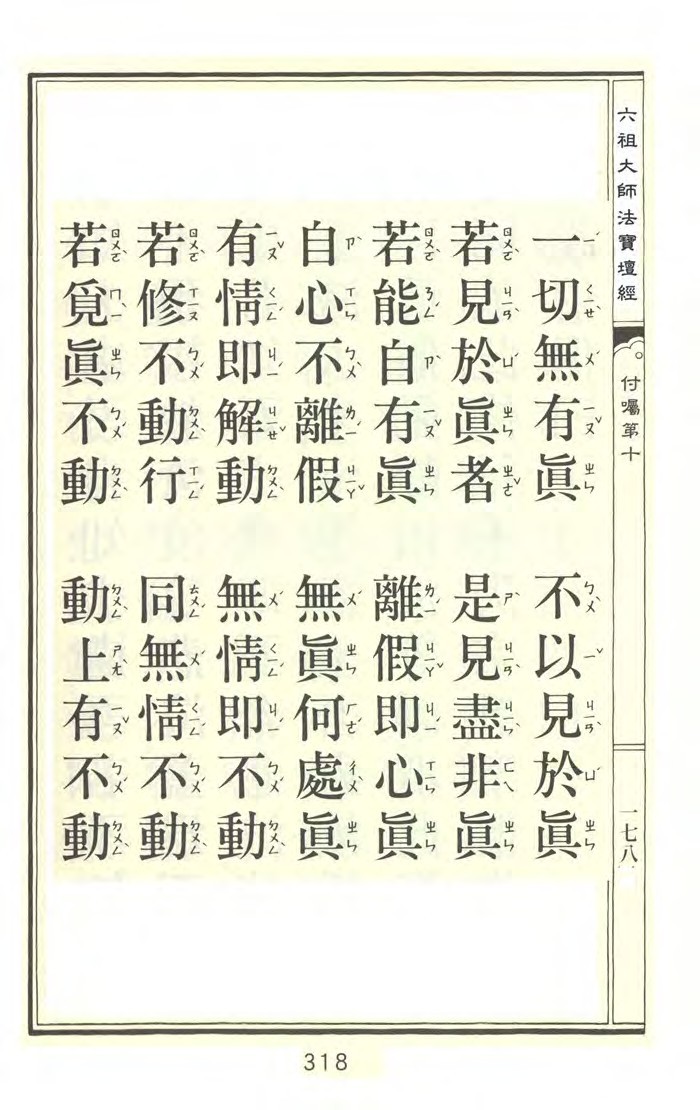 六祖大師法寶壇經
付囑第十
一七八
一切無有眞 不以見於眞
若見於眞者 是見盡非眞
若能自有眞 離假即心眞
自心不離假 無眞何處眞
有情即解動 無情即不動
若修不動行 同無情不動
若覓眞不動 動上有不動
318